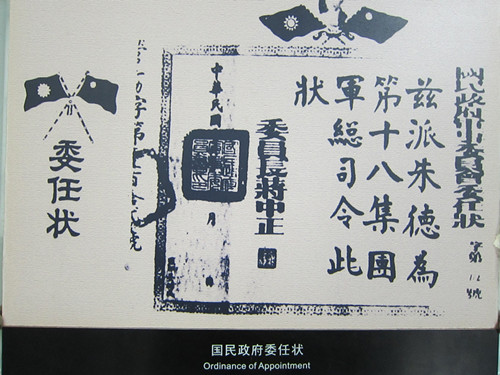 國民政府軍事委員會委任狀
茲派朱德為
第十八集團
軍總司令此
狀
委員長蔣中正
中華民國
月
委任状
国民政府委任状
Ordinance of Appointment